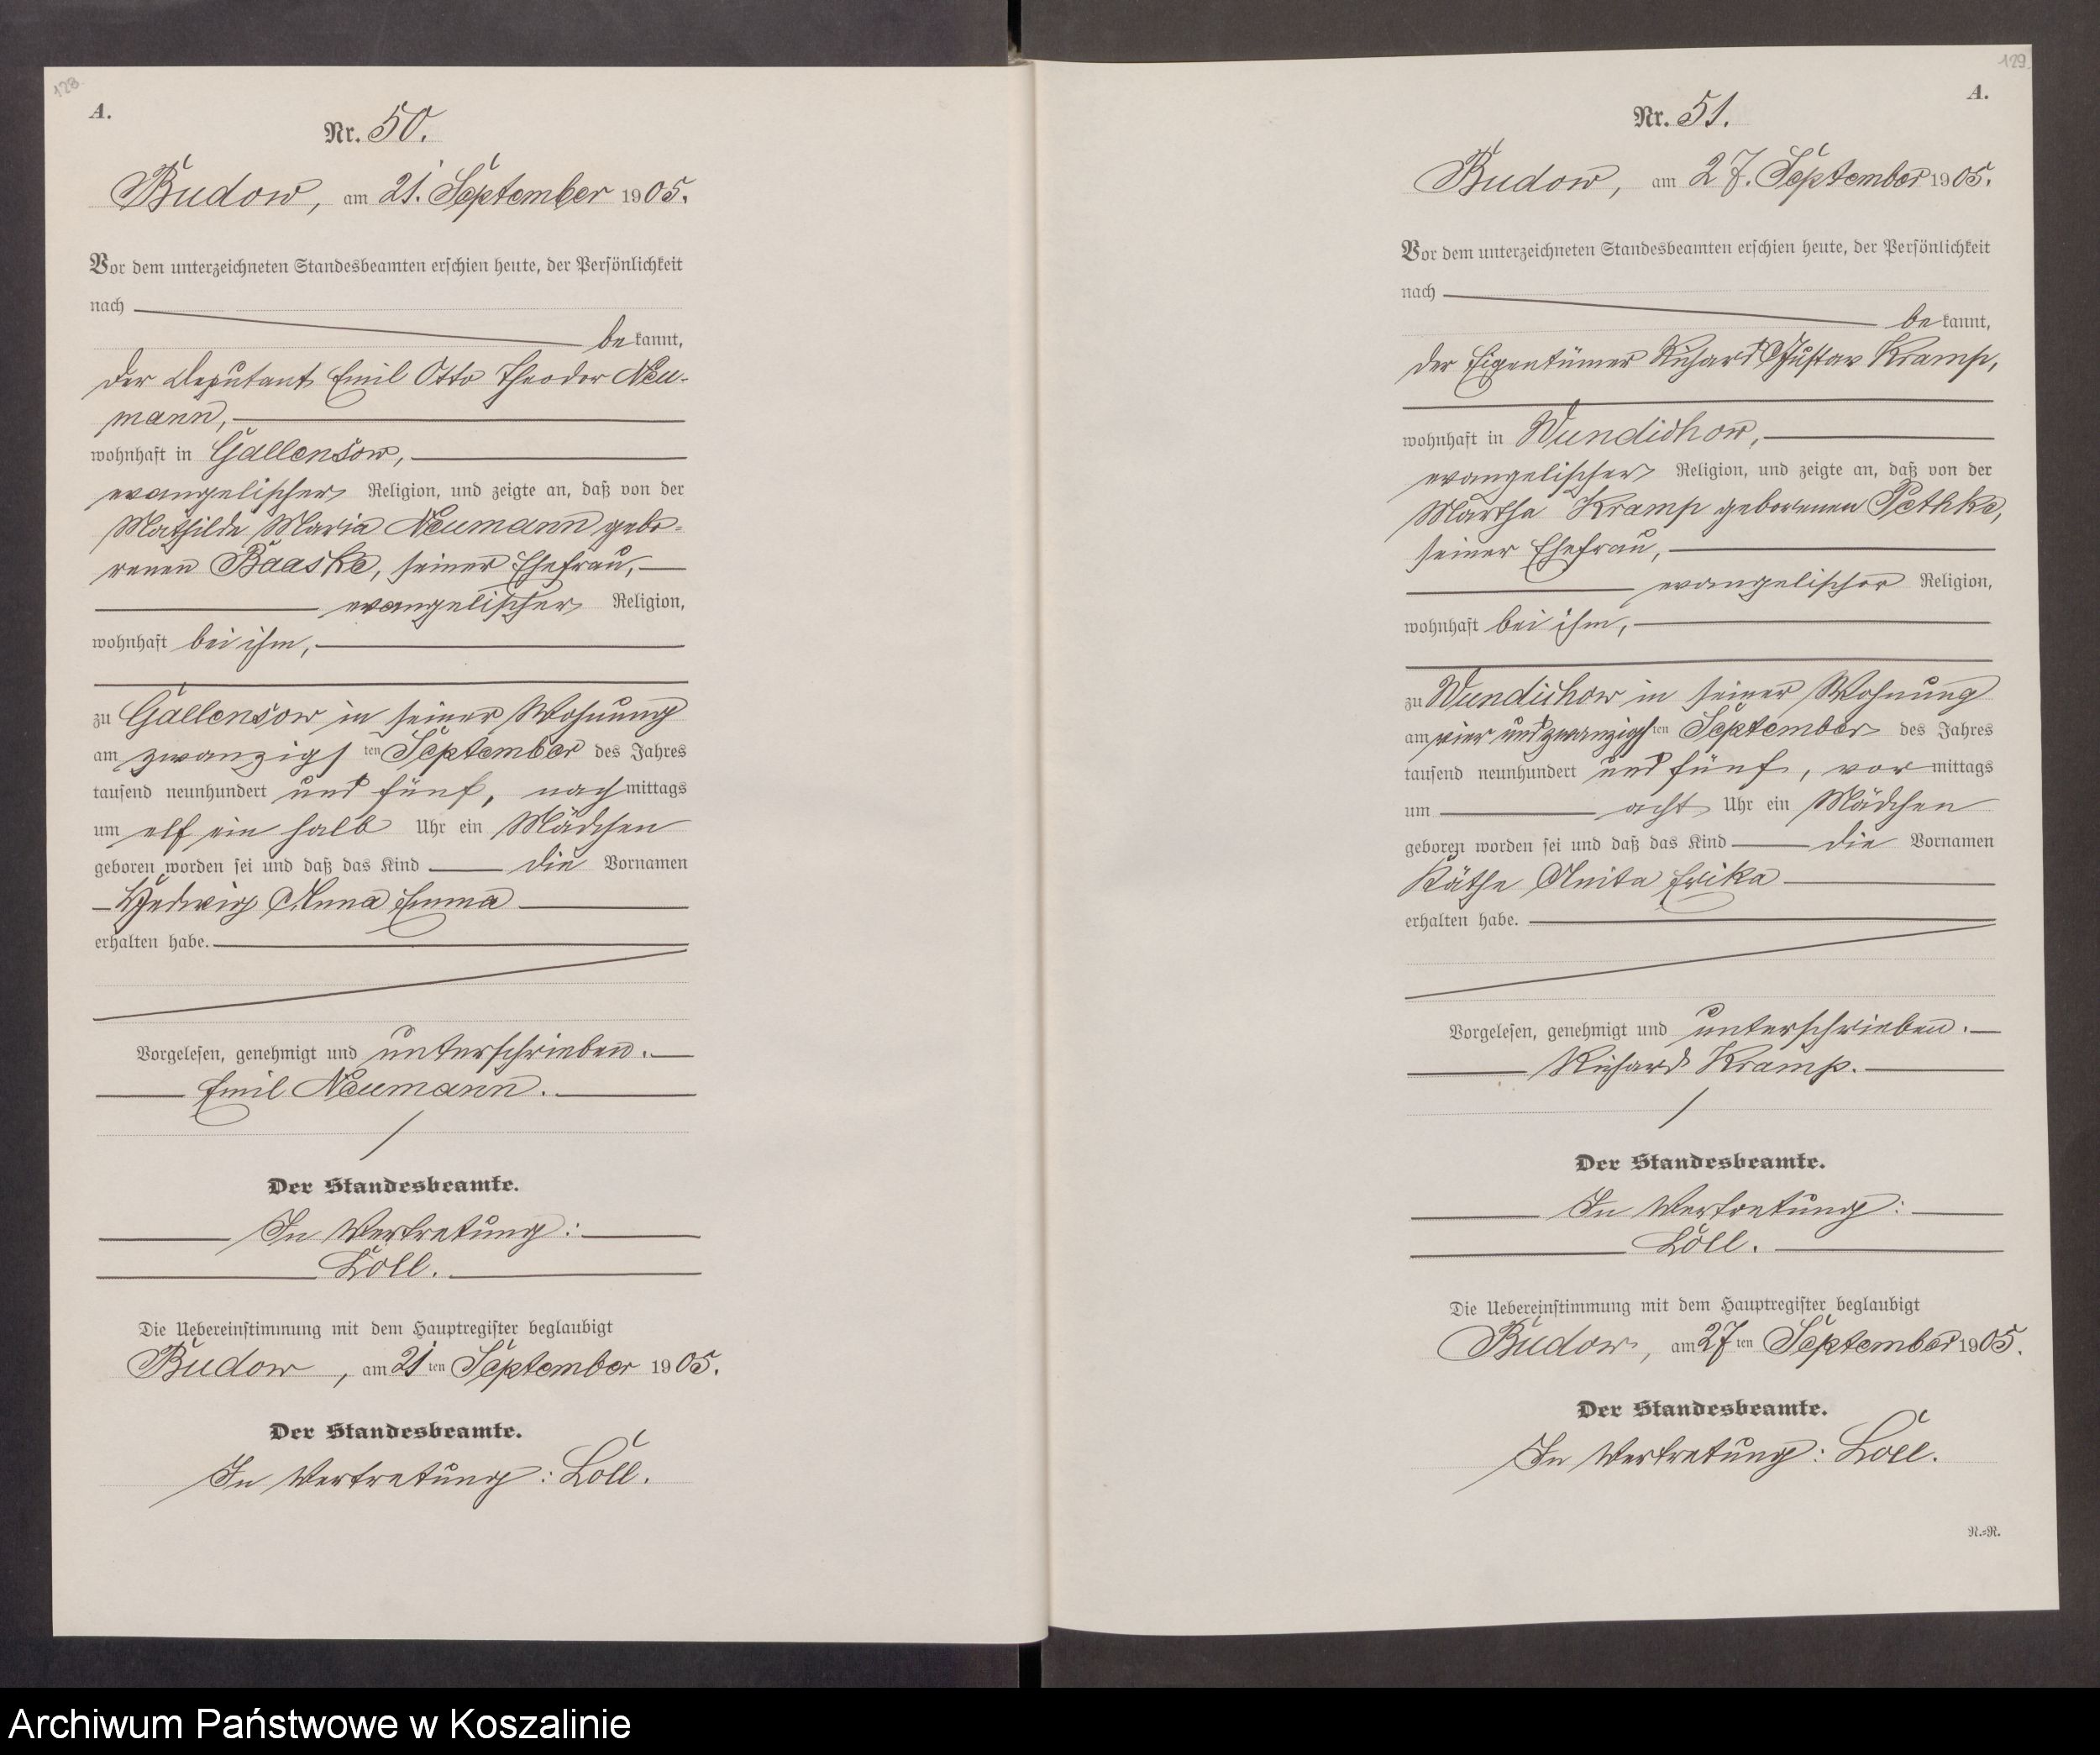 128
A.
Nr. 50.
Budow, am 21. September 1905.
Vor dem unterzeichneten Standesbeamten erschien heute, der Persönlichkeit
nach
bekannt,
der Deputant Emil Otto Theodor Neu-
mann,
wohnhaft in Gallensow,
evangelischer Religion, und zeigte an, daß von der
Mathilde Maria Neumann gebo-
renen Baaske, seiner Ehefrau,
evangelischer Religion,
wohnhaft bei ihm,
zu Gallensow in seiner Wohnung
am zwanzigsten September des Jahres
tausend neunhundert und fünf, nachmittags
um elf ein halb Uhr ein Mädchen
geboren worden sei und daß das Kind die Vornamen
Hedwig Anna Emma
erhalten habe.
Vorgelesen, genehmigt und unterschrieben.
Emil Neumann.
Der Standesbeamte.
In Vertretung:
Löll.
Die Uebereinstimmung mit dem Hauptregister beglaubigt
Budow, am 21ten September 1905.
Der Standesbeamte.
In Vertretung: Löll.
129
A.
Nr. 51.
Budow, am 27. September 1905.
Vor dem unterzeichneten Standesbeamten erschien heute, der Persönlichkeit
nach
bekannt,
der Eigentümer Richard Gustav Kramp,
wohnhaft in Wundichow,
evangelischer Religion, und zeigte an, daß von der
Martha Kramp geborenen Pethke,
seiner Ehefrau,
evangelischer Religion,
wohnhaft bei ihm,
zu Wundichow in seiner Wohnung
am vier und zwanzigsten September des Jahres
tausend neunhundert und fünf, vormittags
um acht Uhr ein Mädchen
geboren worden sei und daß das Kind die Vornamen
Käthe Anita Erika
erhalten habe.
Vorgelesen, genehmigt und unterschrieben.
Richard Kramp.
Der Standesbeamte.
In Vertretung:
Löll.
Die Uebereinstimmung mit dem Hauptregister beglaubigt
Budow, am 27ten September 1905.
Der Standesbeamte.
In Vertretung: Löll.
N.=R.
Archiwum Państwowe w Koszalinie